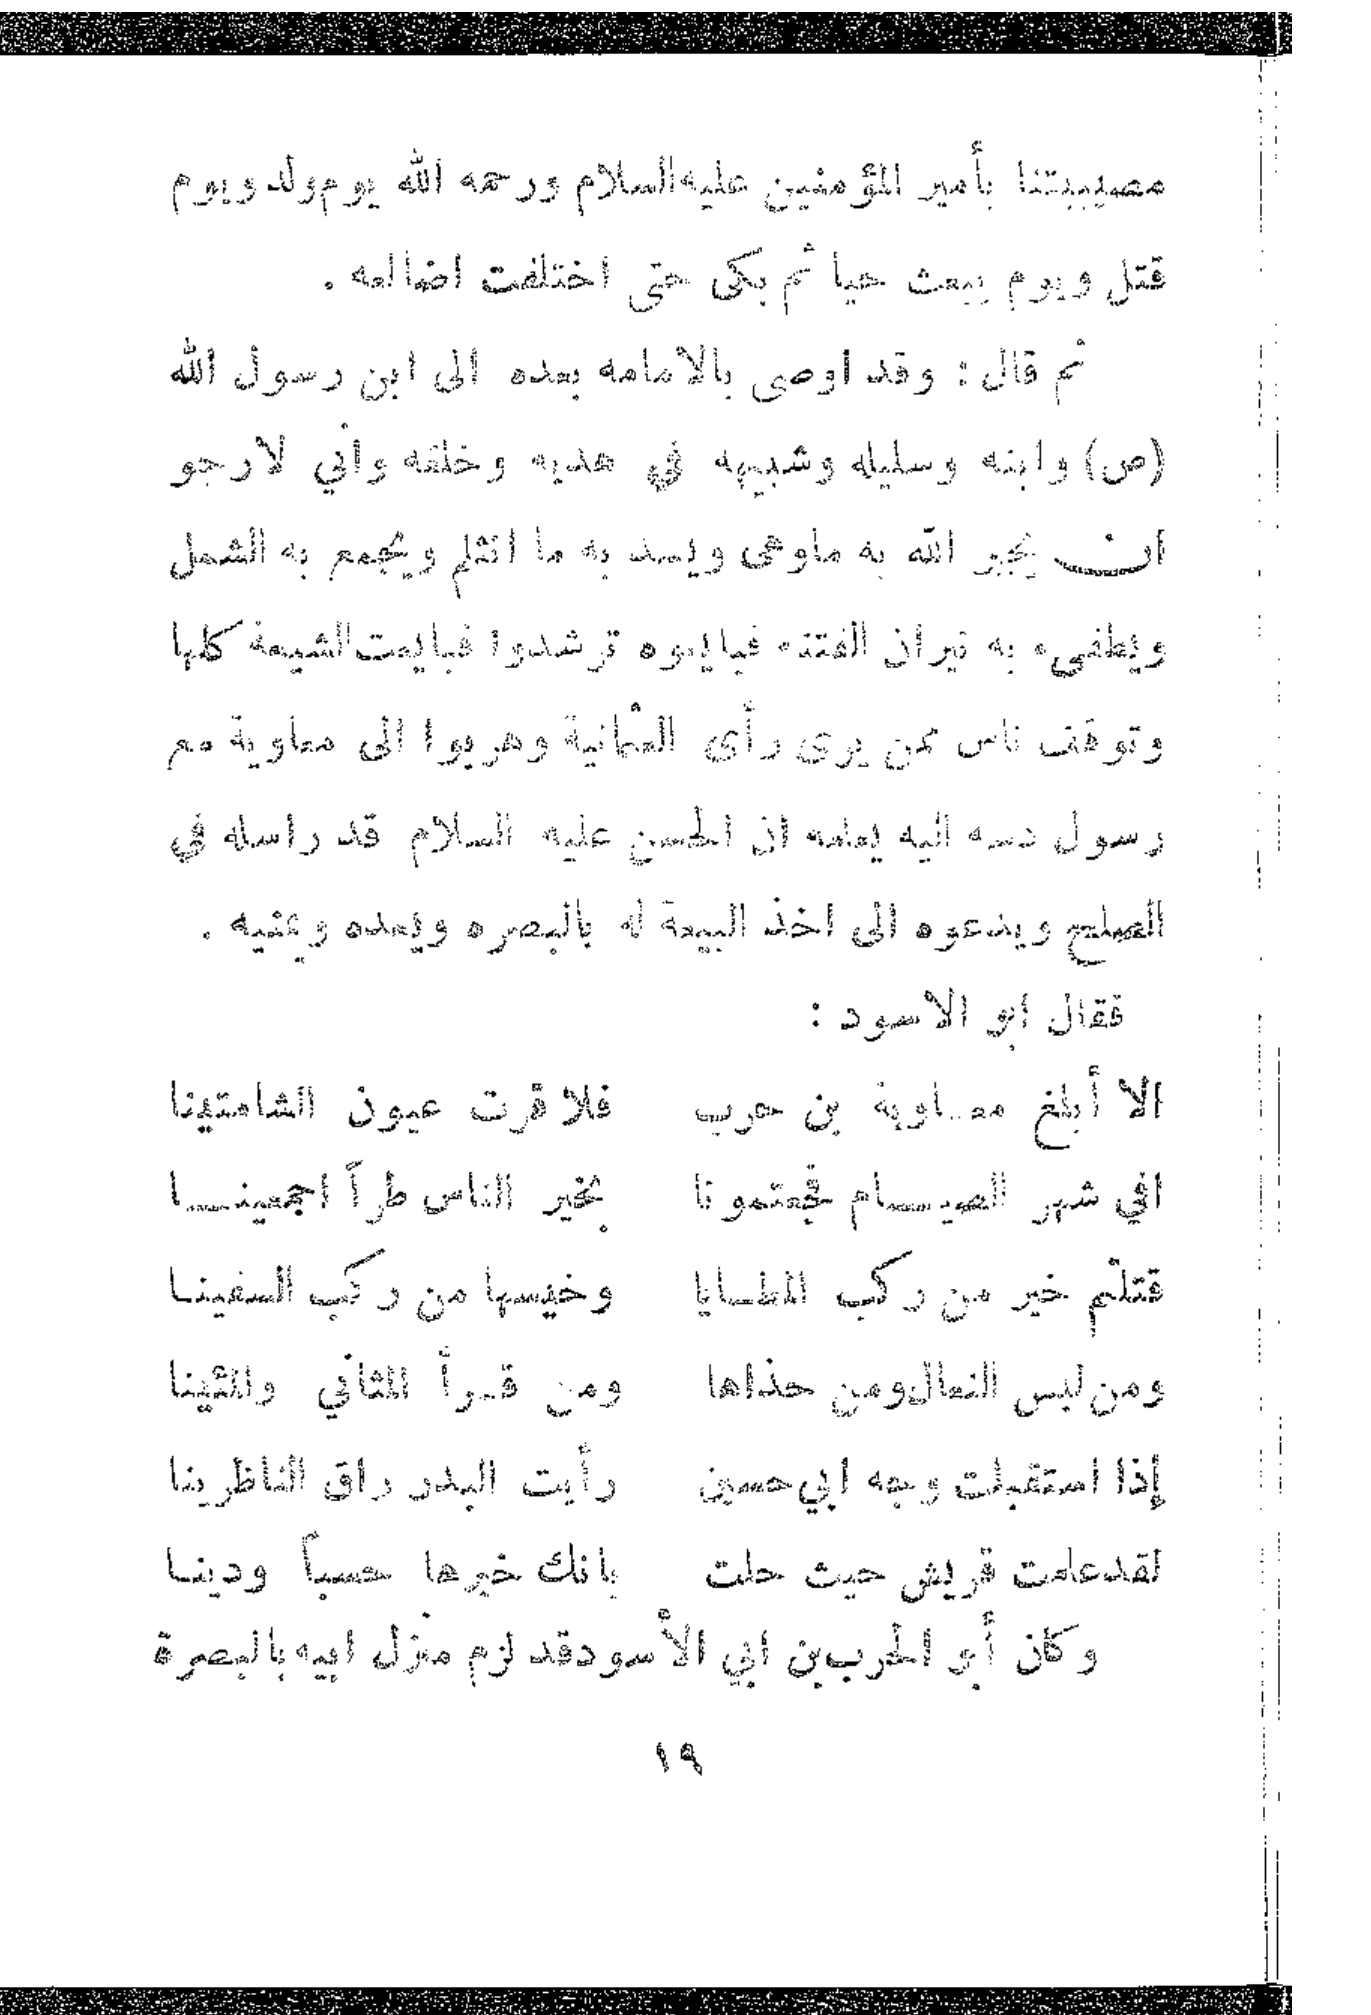 مصيبتنا بأمير المؤمنين عليه السلام ورحمه الله يوم ولد ويوم
قتل ويوم يبعث حيا ثم بكى حتى اختلفت اضالعه .
ثم قال : وقد اوصى بالامامه بعده الى ابن رسول الله
(ص) وابنه وسليله وشبيهه في هديه وخلقه واني لارجو
ان يجبر الله به ماوهى ويسد به ما انثلم ويجمع به الشمل
ويطفىء به نيران الفتنه فبايعوه ترشدوا فبايعت الشيعة كلها
وتوقف ناس ممن يرى رأى العثمانية وهربوا الى معاوية مع
رسول دسه اليه يعلمه ان الحسن عليه السلام قد راسله في
الصلح ويدعوه الى اخذ البيعة له بالبصره ويعده ويمنيه .
فقال ابو الاسود :
الا أبلغ معـاوية بن حرب فلا قرت عيون الشامتينا
افي شهر الصيـــام فجعتمونا بخير الناس طراً اجمعينـــا
قتلتم خير من ركب المطــايا وخيسها من ركب السفينــا
ومن لبس النعال ومن حذاها ومن قـرأ المثاني والمئينا
إذا استقبلت وجه ابي حسين رأيت البدر راق الناظرينا
لقد علمت قريش حيث حلت بانك خيرها حسباً ودينــا
وكان أبو الحرب بن ابي الأسود قد لزم منزل ابيه بالبصرة
١٩